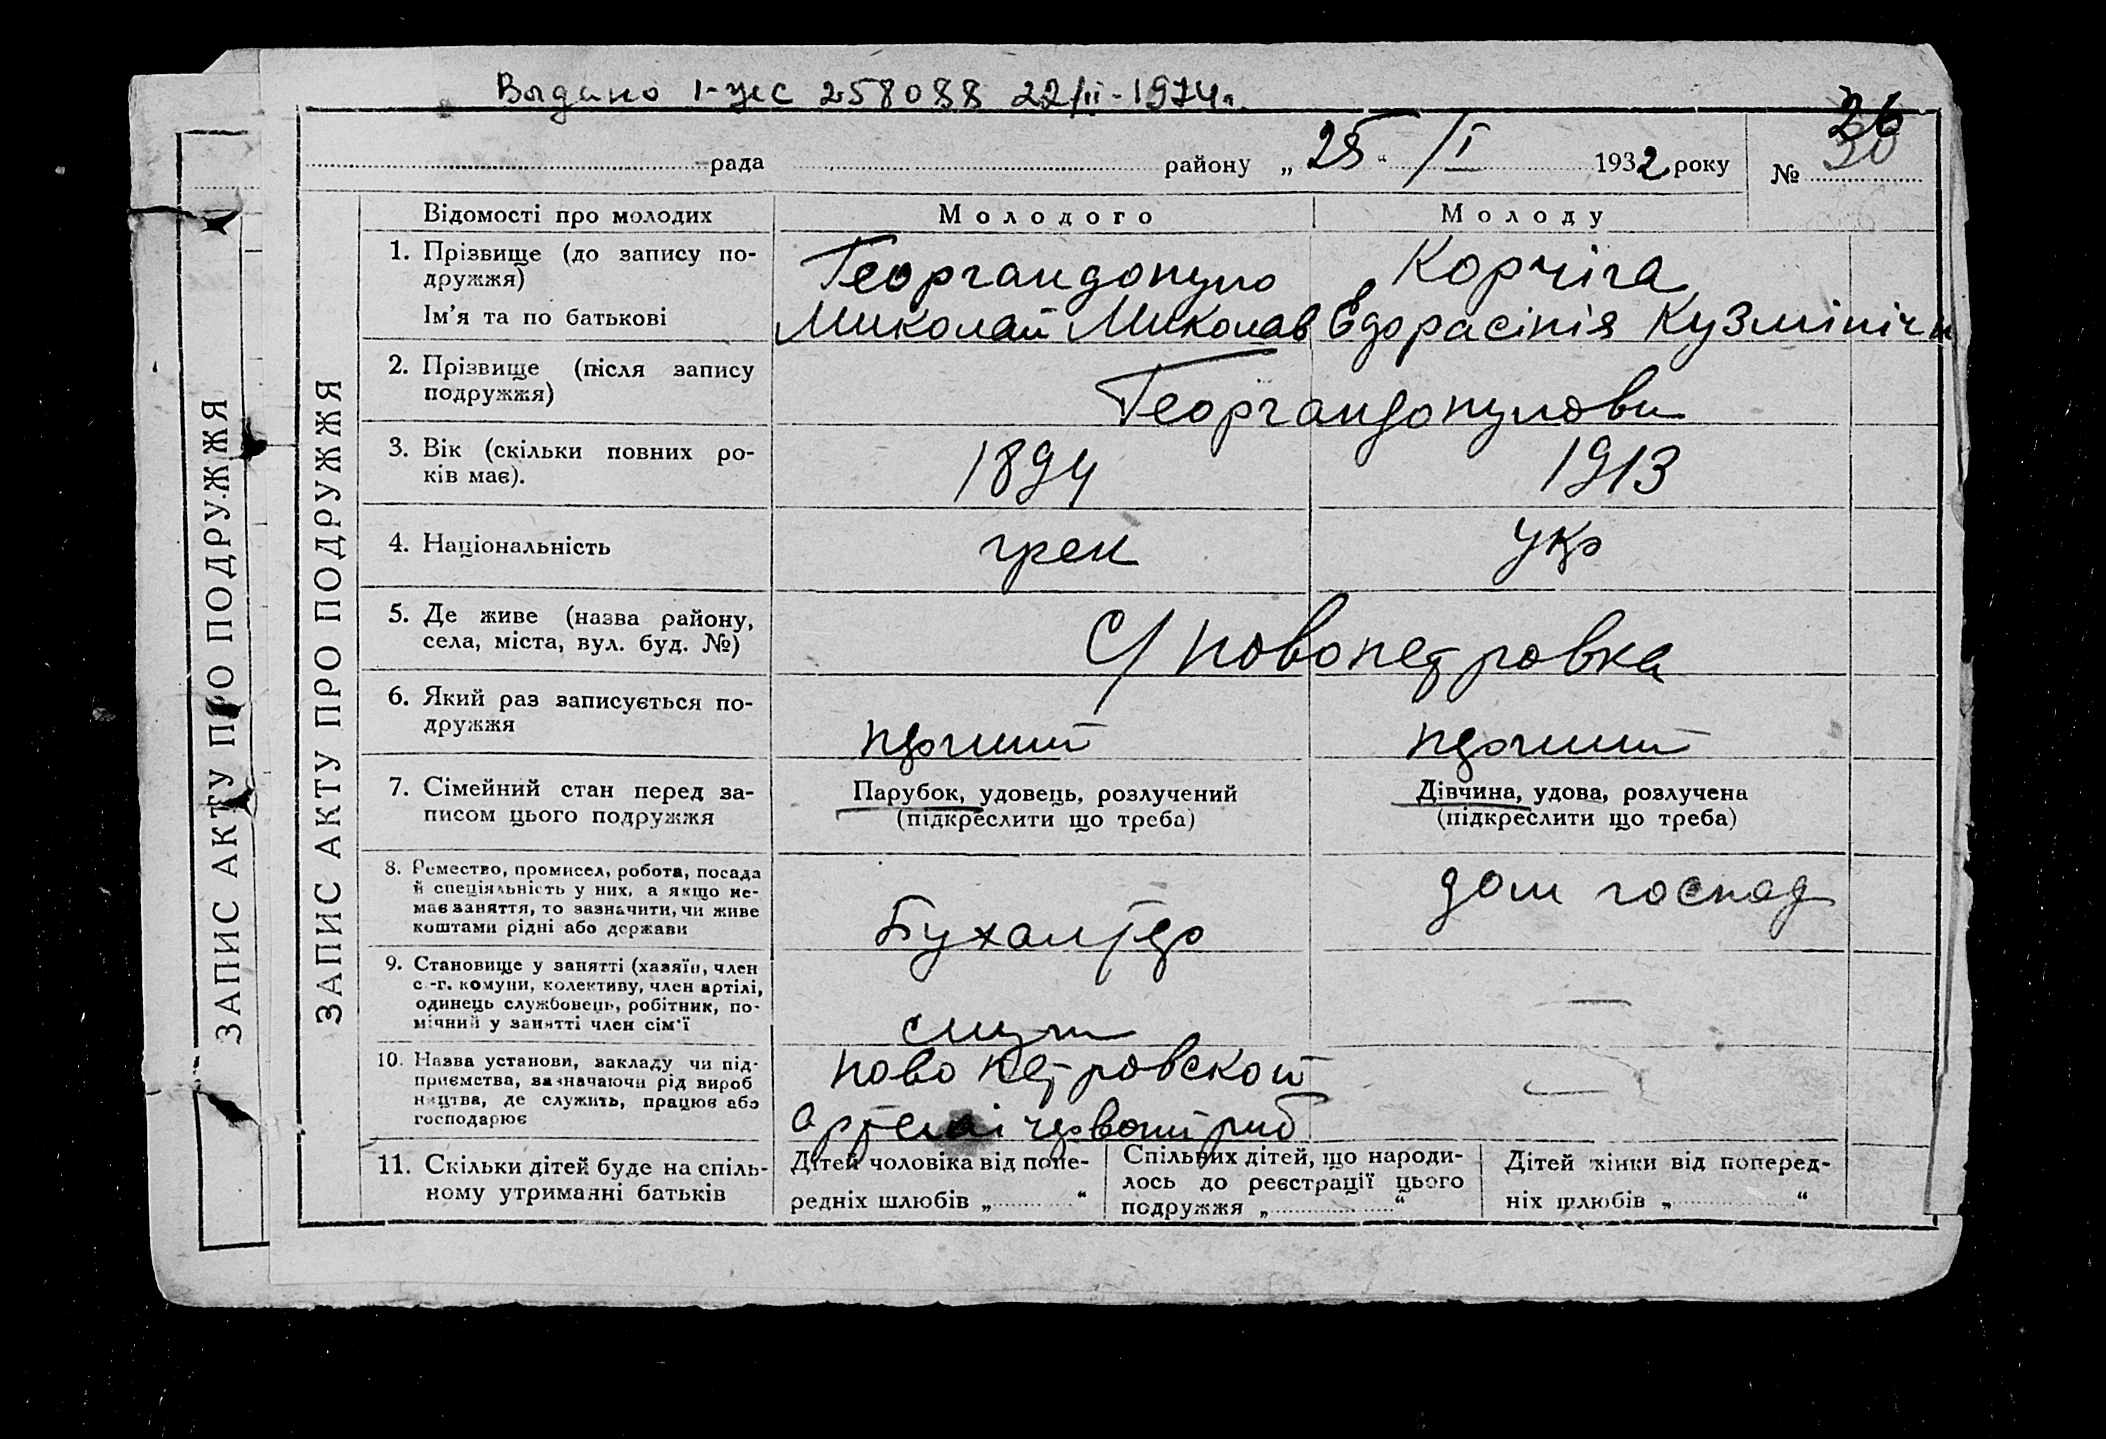 Выдано I-жс 258088 22/II-1974г.
рада району „25“ /I 1932 року № 26
30
Відомості про молодих Молодого Молоду
1. Прізвище (до запису по-
дружжя) Георгандопуло Корчіга
Ім'я та по батькові Миколай Миколав Єфрасінія Кузмінічн
2. Прізвище (після запису
подружжя) Георгандопулови
3. Вік (скільки повних ро-
ків має). 1894 1913
4. Національність грек укр
5. Де живе (назва району,
села, міста, вул. буд. №) С/ новопетровка
6. Який раз записується по-
дружжя перший перший
7. Сімейний стан перед за-
писом цього подружжя
Парубок, удовець, розлучений
(підкреслити що треба)
Дівчина, удова, розлучена
(підкреслити що треба)
8. Ремество, промисел, робота, посада
й спеціяльність у них, а якщо не-
має заняття, то зазначити, чи живе
коштами рідні або держави
Бухалтер дом господ
9. Становище у занятті (хазяїн, член
с.-г. комуни, колективу, член артілі,
одинець службовець, робітник, по-
мічний у занятті член сім'ї
служ —
10. Назва установи, закладу чи під-
приємства, зазначаючи рід вироб
ництва, де служить, працює або
господарює
ново петровской —
артелі червоний риб
11. Скільки дітей буде на спіль-
ному утриманні батьків
Дітей чоловіка від попе-
редніх шлюбів „ “
Спільних дітей, що народи-
лось до реєстрації цього
подружжя „ “
Дітей жінки від поперед-
ніх шлюбів „ “
ЗАПИС АКТУ ПРО ПОДРУЖЖЯ
ЗАПИС АКТУ ПРО ПОДРУЖЖЯ